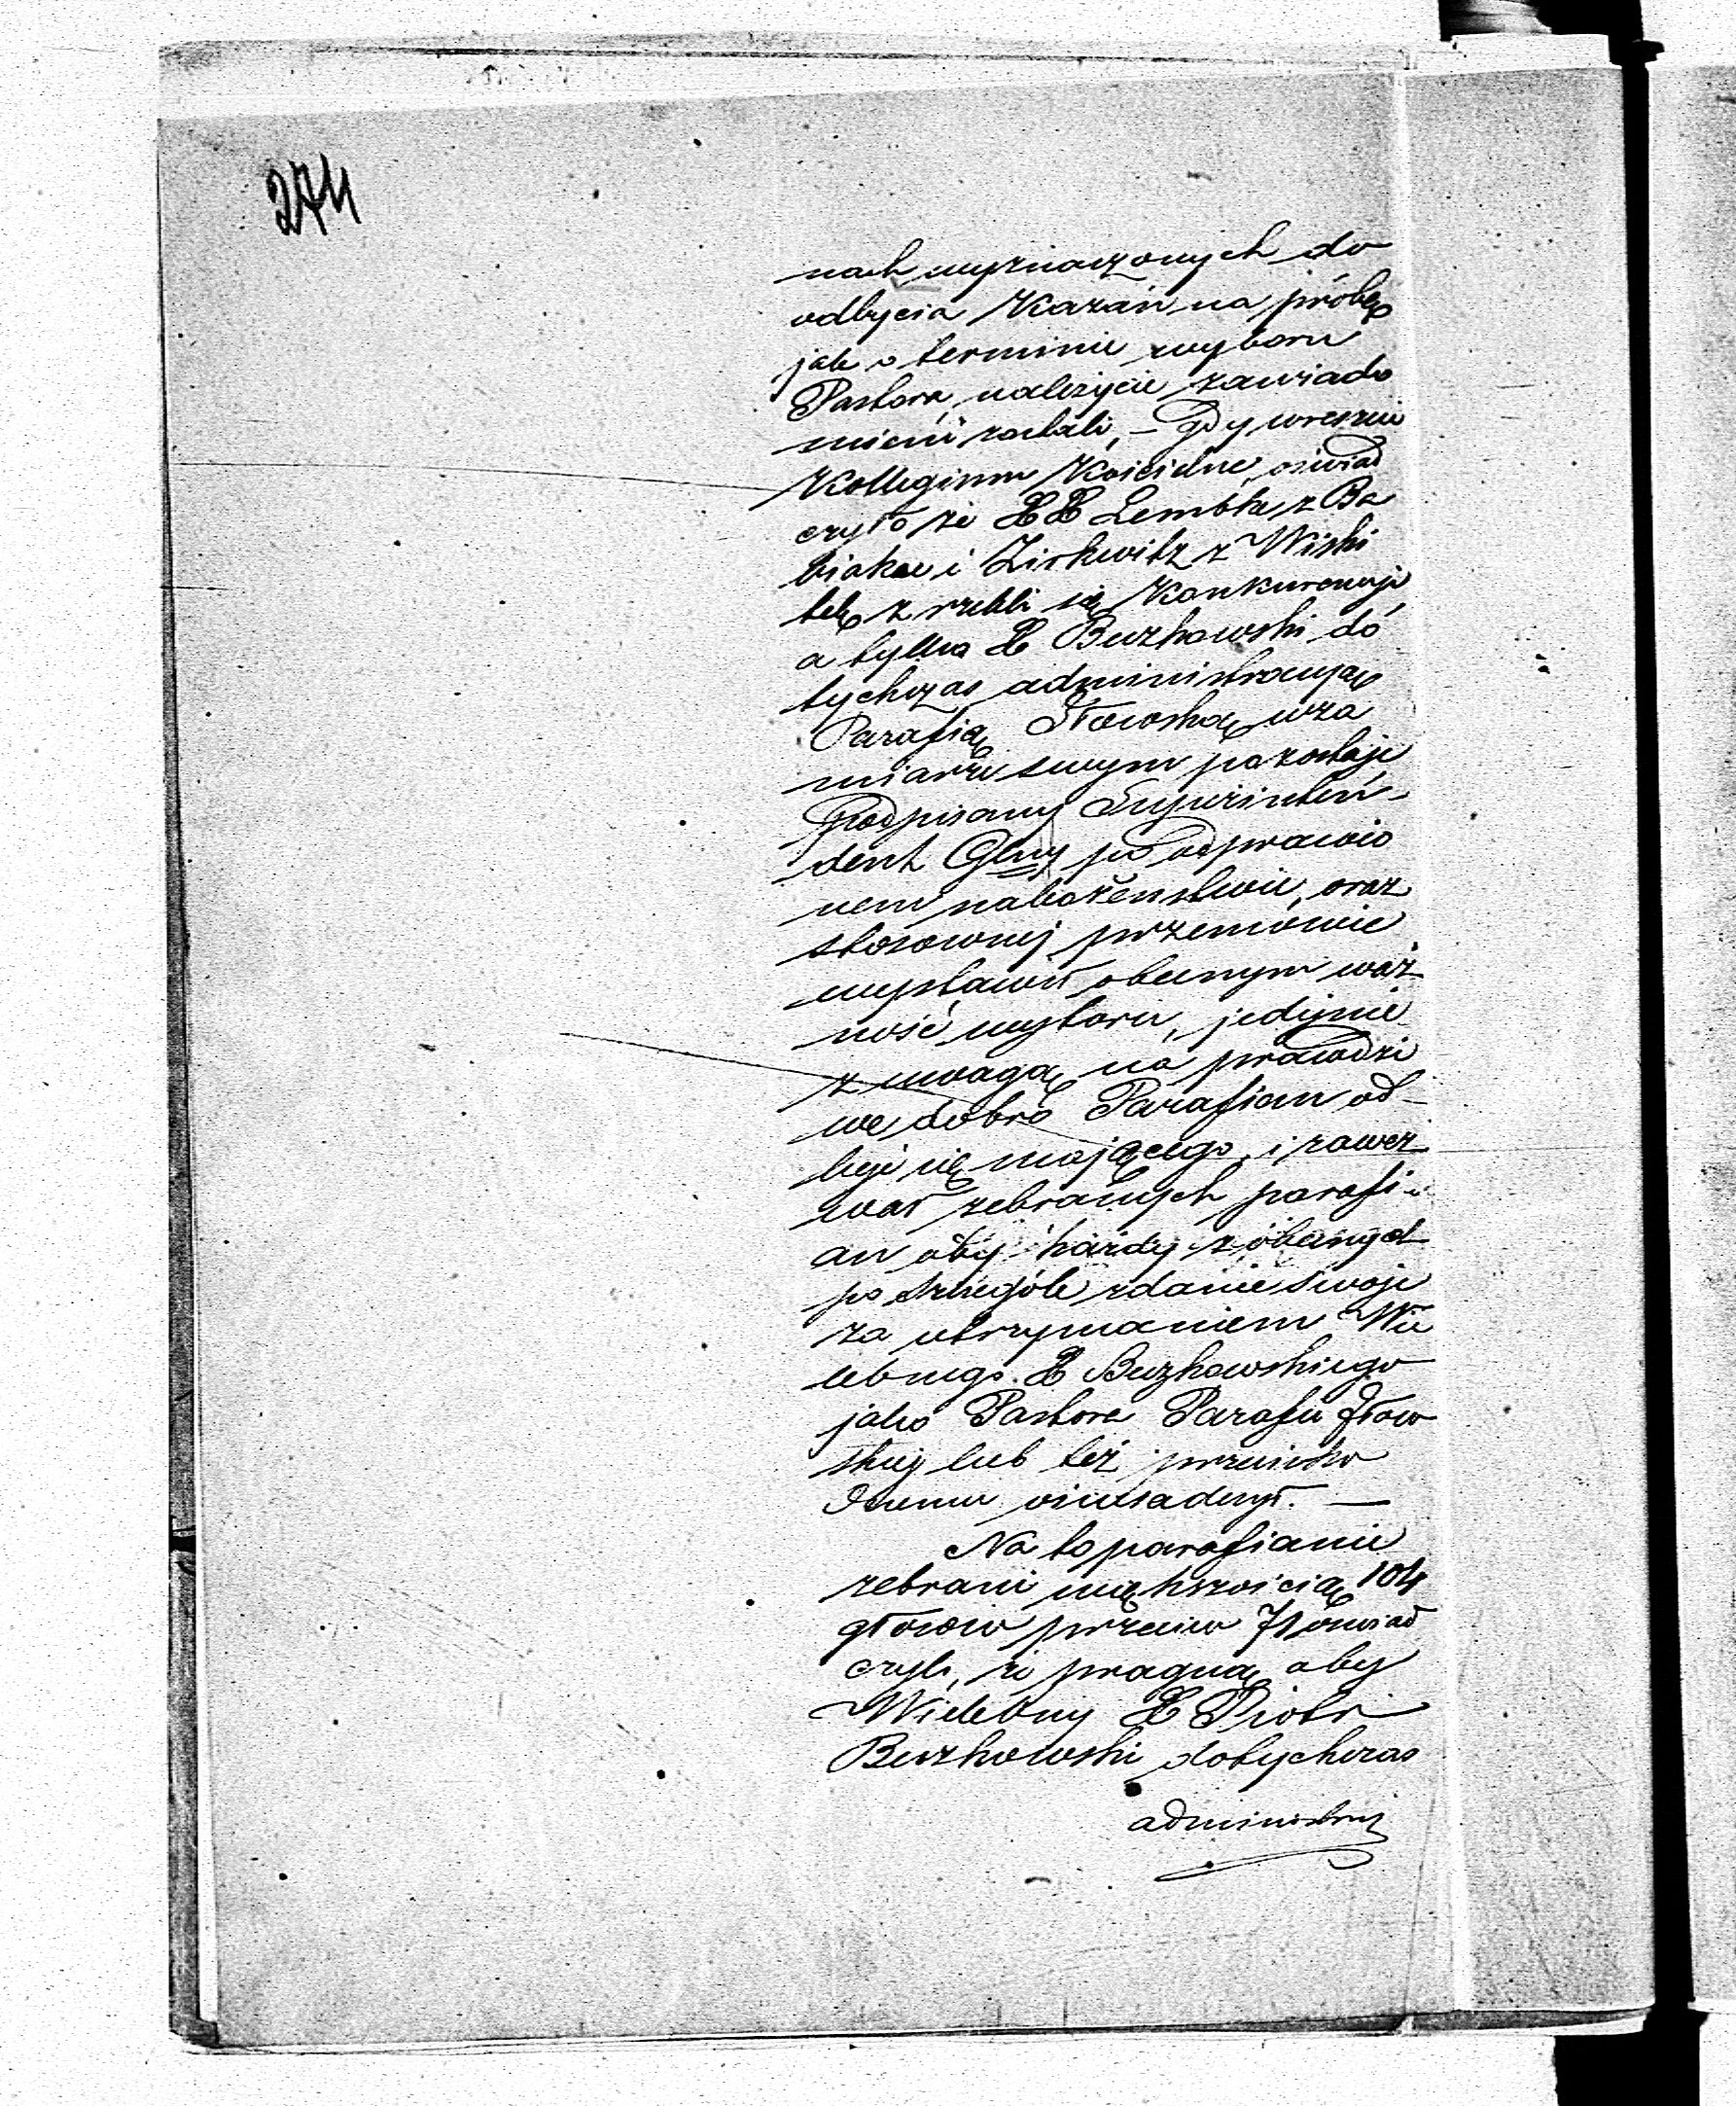 274
nach wyznaczonych do
odbycia Kazań na próbę
jak o terminie wyboru
Pastora, należycie zawiado
mieni zostali, – Gdy wreszcie
Kollegium Kościelne, oświad
czyło że XX Lembke z Ba
biaka i Zirkwitz z Wiski
tek, zrzekli się Konkurencyi
a tylko X Buzkowski do
tychczas administrujący
Parafią Iłowską w za
miarze swym pozostaje
Podpisany Superinten-
dent Glny po odprawio
nem nabożeństwie oraz
stosownej przemowie
wystawił obecnym waż
ność wyboru, jedynie
z uwagą na prawdzi
we dobro Parafian od-
być się mającego, i zawez
wał zebranych parafi-
an aby każdy z obecnych
po szczególe zdanie swoje
za utrzymaniem Wie
lebnego X Buzkowskiego
jako Pastora Parafii Iłow
skiej lub też przeciwko
Onemu oświadczył. —
Na to parafianie
zebrani większością 104
głosów przeciw 7 oświad
czyli, że pragną aby
Wielebny X Piotr
Buzkowski dotychczas
administruj